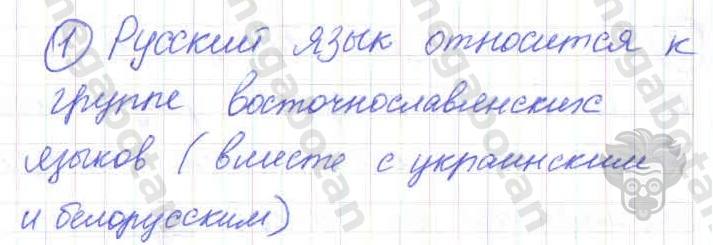 ① Русский язык относится к
группе восточнославянских
языков (вместе с украинским
и белорусским)